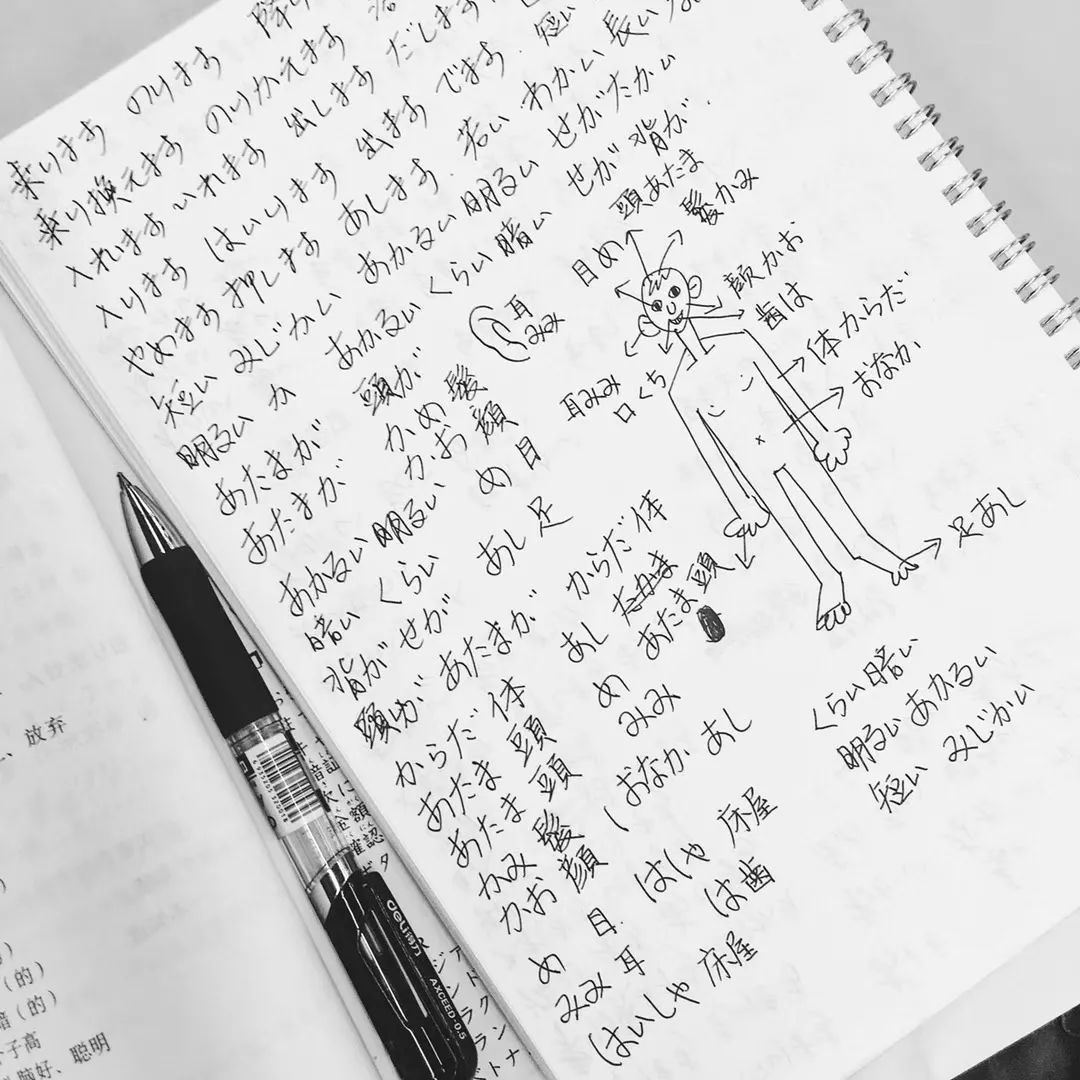 乗ります のります 降り
乗り換えます のりかえます
入れます いれます 出します だします
入ります はいります 出ます でます 短い
やめます 押します おします 若い わかい 長い
短い みじかい あかるい 明るい せがたかい
明るい か あかるい くらい 暗い せが 背が
あたまが 頭が
あたまが かめ 髪
かお 顔
あかるい 明るい め 目
暗い くらい あし 足
背が せが からだ 体
頭が あたまが あし
からだ 体 あたま 頭
あたま 頭 め
あたま 頭 みみ
かみ 髪 おなか あし
かお 顔
め 目 はしゃ 床屋
みみ 耳 は 歯
はいしゃ 床屋
耳
みみ
頭あたま
髪かみ
目め
顔かお
歯は
体からだ
おなか
耳みみ
口くち
足あし
くらい 暗い
明るい あかるい
短い みじかい
放弃
(的)
(的)
子高
聪明
deli得力
AXCEED-0.5